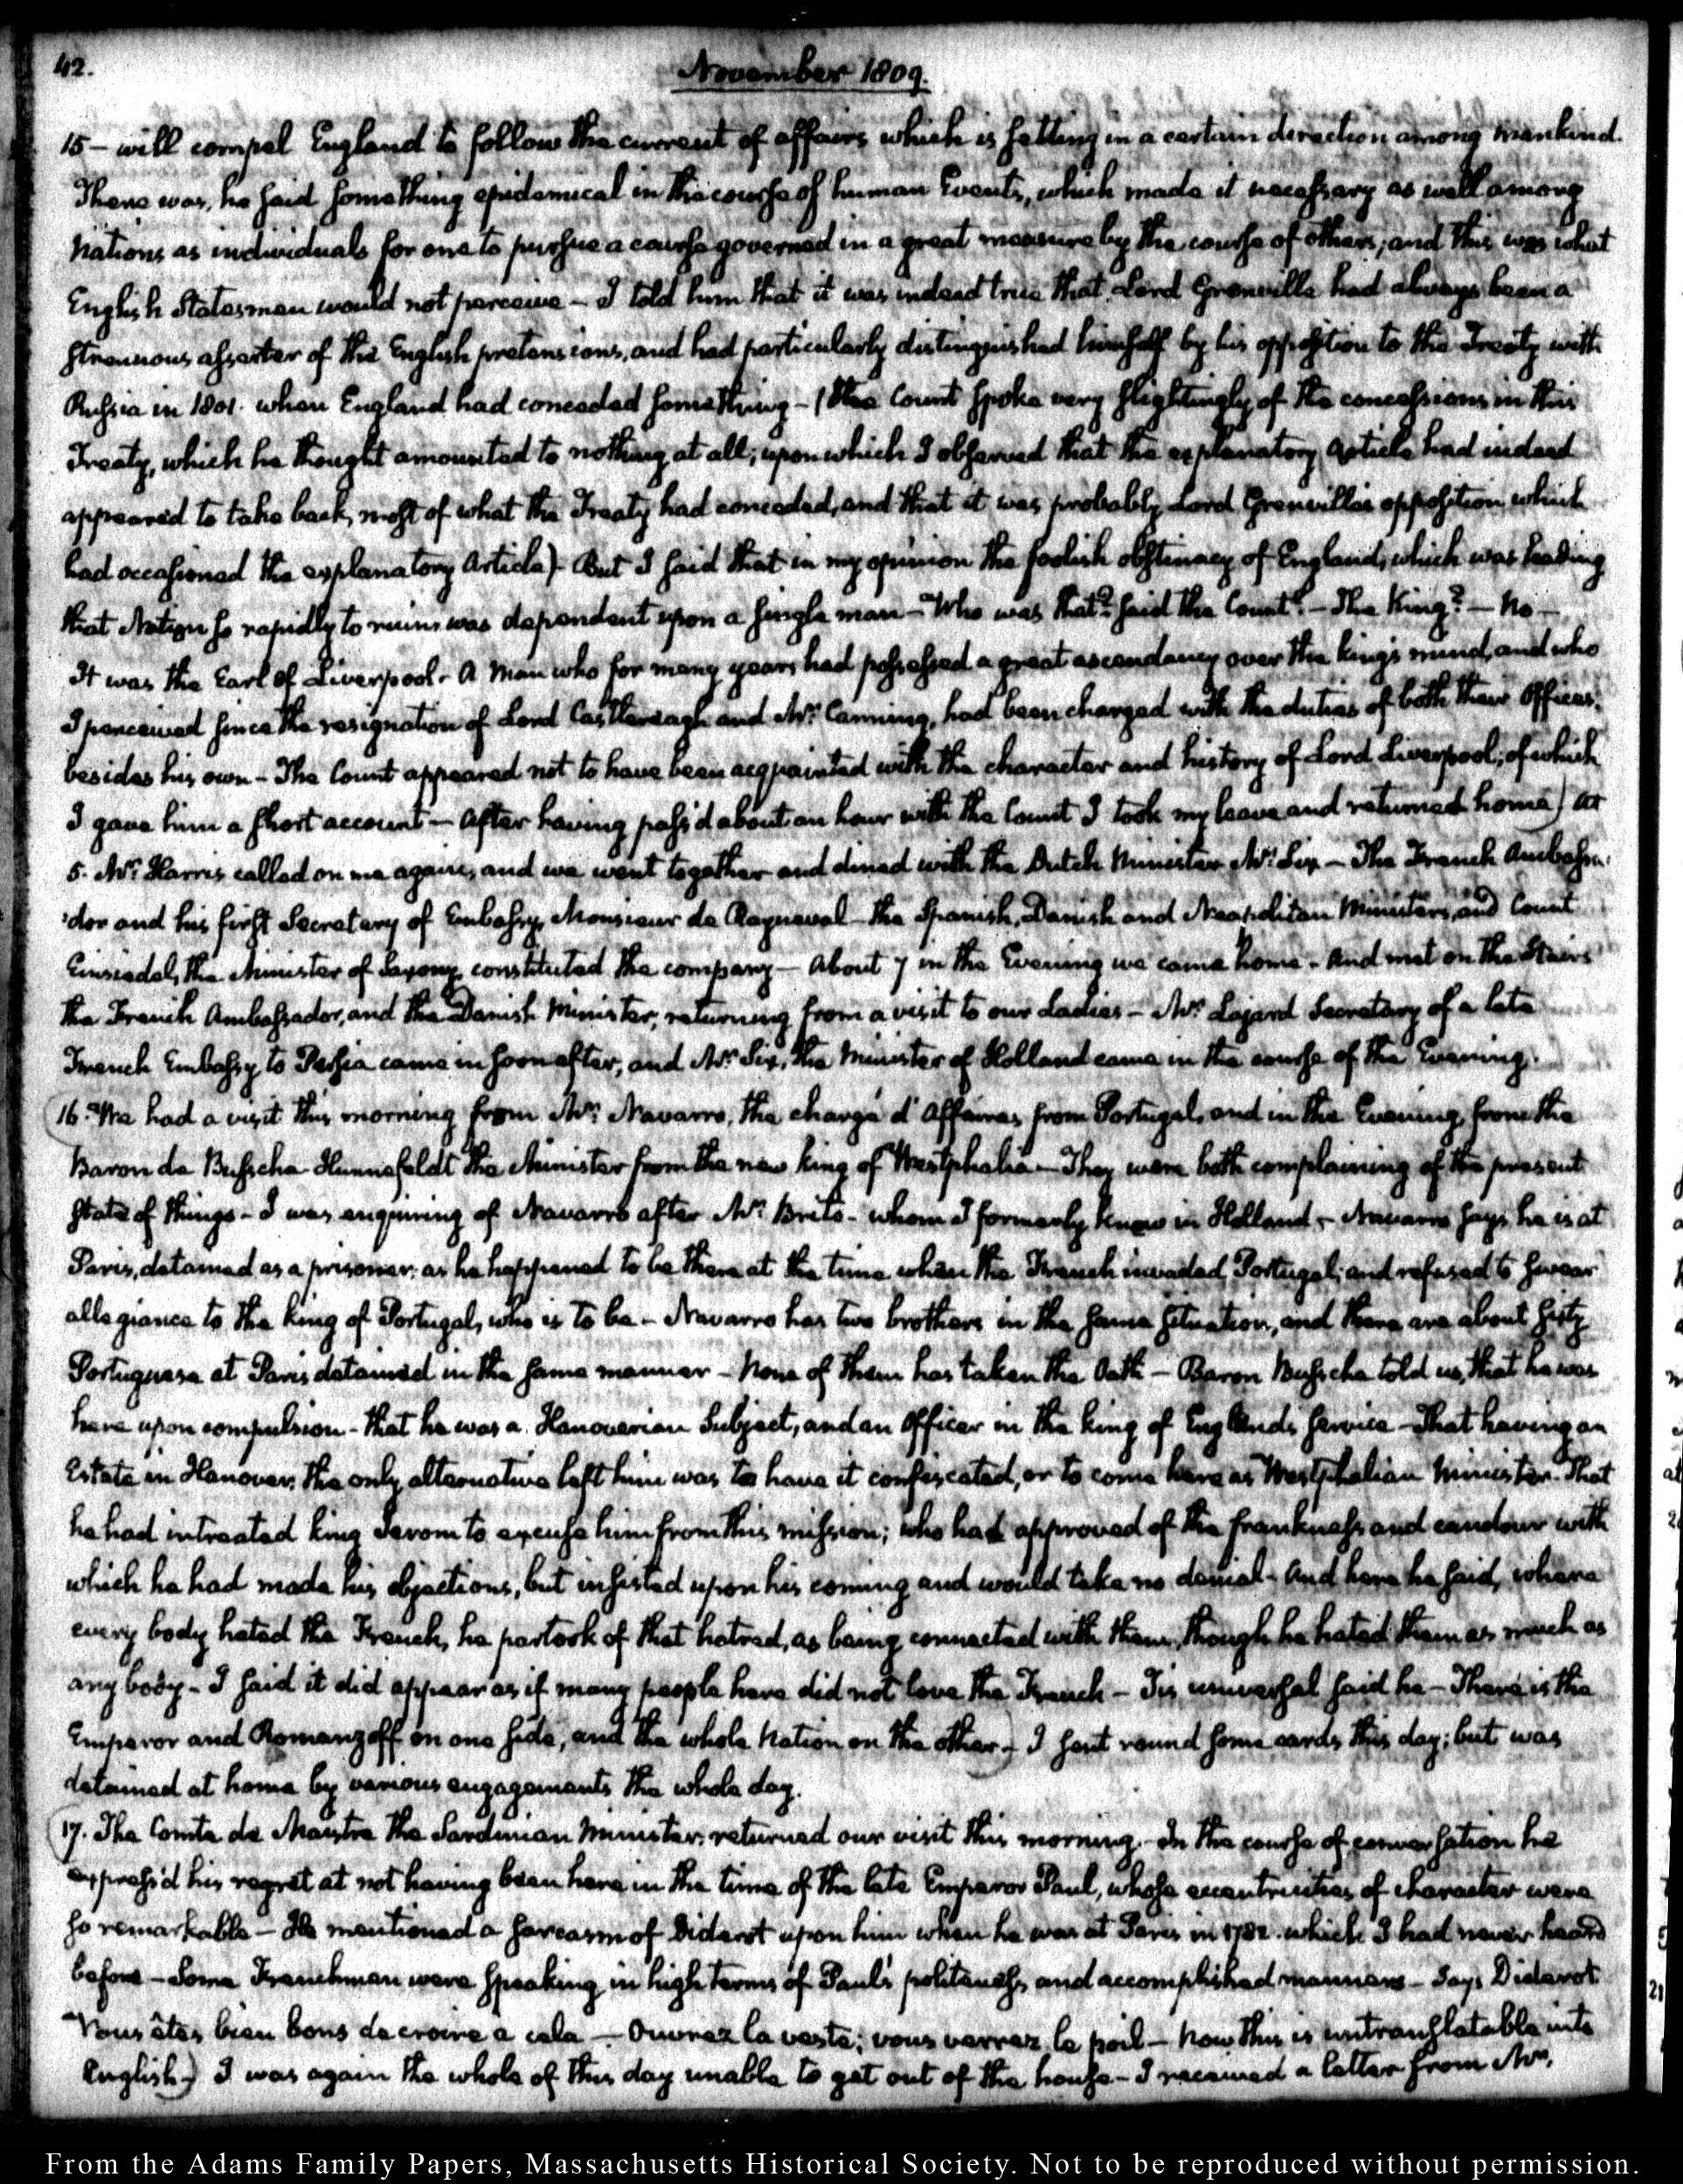 42.
November 1809.
15 – will compel England to follow the current of affairs which is setting in a certain direction among mankind.
There was, he said something epidemical in the course of human Events, which made it necessary as well among
Nations as individuals for one to pursue a course governed in a great measure by the course of others; and this was what
English Statesmen would not perceive – I told him that it was indeed true that Lord Grenville had always been a
strenuous assertor of the English pretensions, and had particularly distinguished himself by his opposition to the Treaty with
Russia in 1801. when England had conceded something – (the Count spoke very slightingly of the concessions in this
Treaty, which he thought amounted to nothing at all; upon which I observed that the explanatory Article had indeed
appeared to take back, most of what the Treaty had conceded, and that it was probably Lord Grenville's opposition which
had occasioned the explanatory Article) – But I said that in my opinion the foolish obstinacy of England, which was leading
that Nation so rapidly to ruin, was dependent upon a single man – "Who was that? said the Count." – The King? – No –
It was the Earl of Liverpool – A man who for many years had possessed a great ascendancy over the king's mind, and who
I perceived since the resignation of Lord Castlereagh and Mr. Canning, had been charged with the duties of both their Offices;
besides his own – The Count appeared not to have been acquainted with the character and history of Lord Liverpool; of which
I gave him a short account – After having pass'd about an hour with the Count I took my leave and returned home) At
5. Mr. Harris called on me again, and we went together and dined with the Dutch Minister Mr. Six – The French Ambassa-
-dor and his first Secretary of Embassy, Monsieur de Rayneval – the Spanish, Danish and Neapolitan Ministers, and Count
Einsiedel, the Minister of Saxony, constituted the company – About 7 in the Evening we came home – And met on the Stairs
the French Ambassador, and the Danish Minister, returning from a visit to our Ladies – Mr. Lajard Secretary of a late
French Embassy to Persia came in soon after, and Mr. Six, the Minister of Holland came in the course of the Evening.
16. We had a visit this morning from Mr. Navarro, the chargé d'Affaires from Portugal, and in the Evening, from the
Baron de Bussche-Hunnefeldt the Minister from the new king of Westphalia – They were both complaining of the present
state of things – I was enquiring of Navarro after Mr. Brito – whom I formerly knew in Holland – Navarro says he is at
Paris, detained as a prisoner; as he happened to be there at the time when the French invaded Portugal; and refused to swear
allegiance to the king of Portugal, who is to be – Navarro has two brothers in the same situation, and there are about sixty
Portuguese at Paris detained in the same manner – None of them has taken the Oath – Baron Bussche told us, that he was
here upon compulsion – that he was a Hanoverian Subject, and an Officer in the king of England's service – That having an
Estate in Hanover, the only alternative left him was to have it confiscated, or to come here as Westphalian Minister. That
he had intreated king Jerom to excuse him from this mission; who had approved of the frankness and candour with
which he had made his objections, but insisted upon his coming and would take no denial – And here he said, where
every body hated the French, he partook of that hatred, as being connected with them, though he hated them as much as
any body – I said it did appear as if many people here did not love the French – Tis universal said he – There is the
Emperor and Romanzoff on one side, and the whole Nation on the other – ) I sent round some cards this day; but was
detained at home by various engagements the whole day.
17. The Comte de Maystre the Sardinian Minister, returned our visit this morning. In the course of conversation he
express'd his regret at not having been here in the time of the late Emperor Paul, whose excentricities of character were
so remarkable – He mentioned a sarcasm of Diderot upon him when he was at Paris in 1782. which I had never heard
before – Some Frenchmen were speaking in high terms of Paul's politeness, and accomplished manners – Says Diderot
"Vous êtes bien bons de croire à cela – Ouvrez la veste; vous verrez le poil – Now this is untranslatable into
English) I was again the whole of this day unable to get out of the house – I received a letter from Mr.
From the Adams Family Papers, Massachusetts Historical Society. Not to be reproduced without permission.